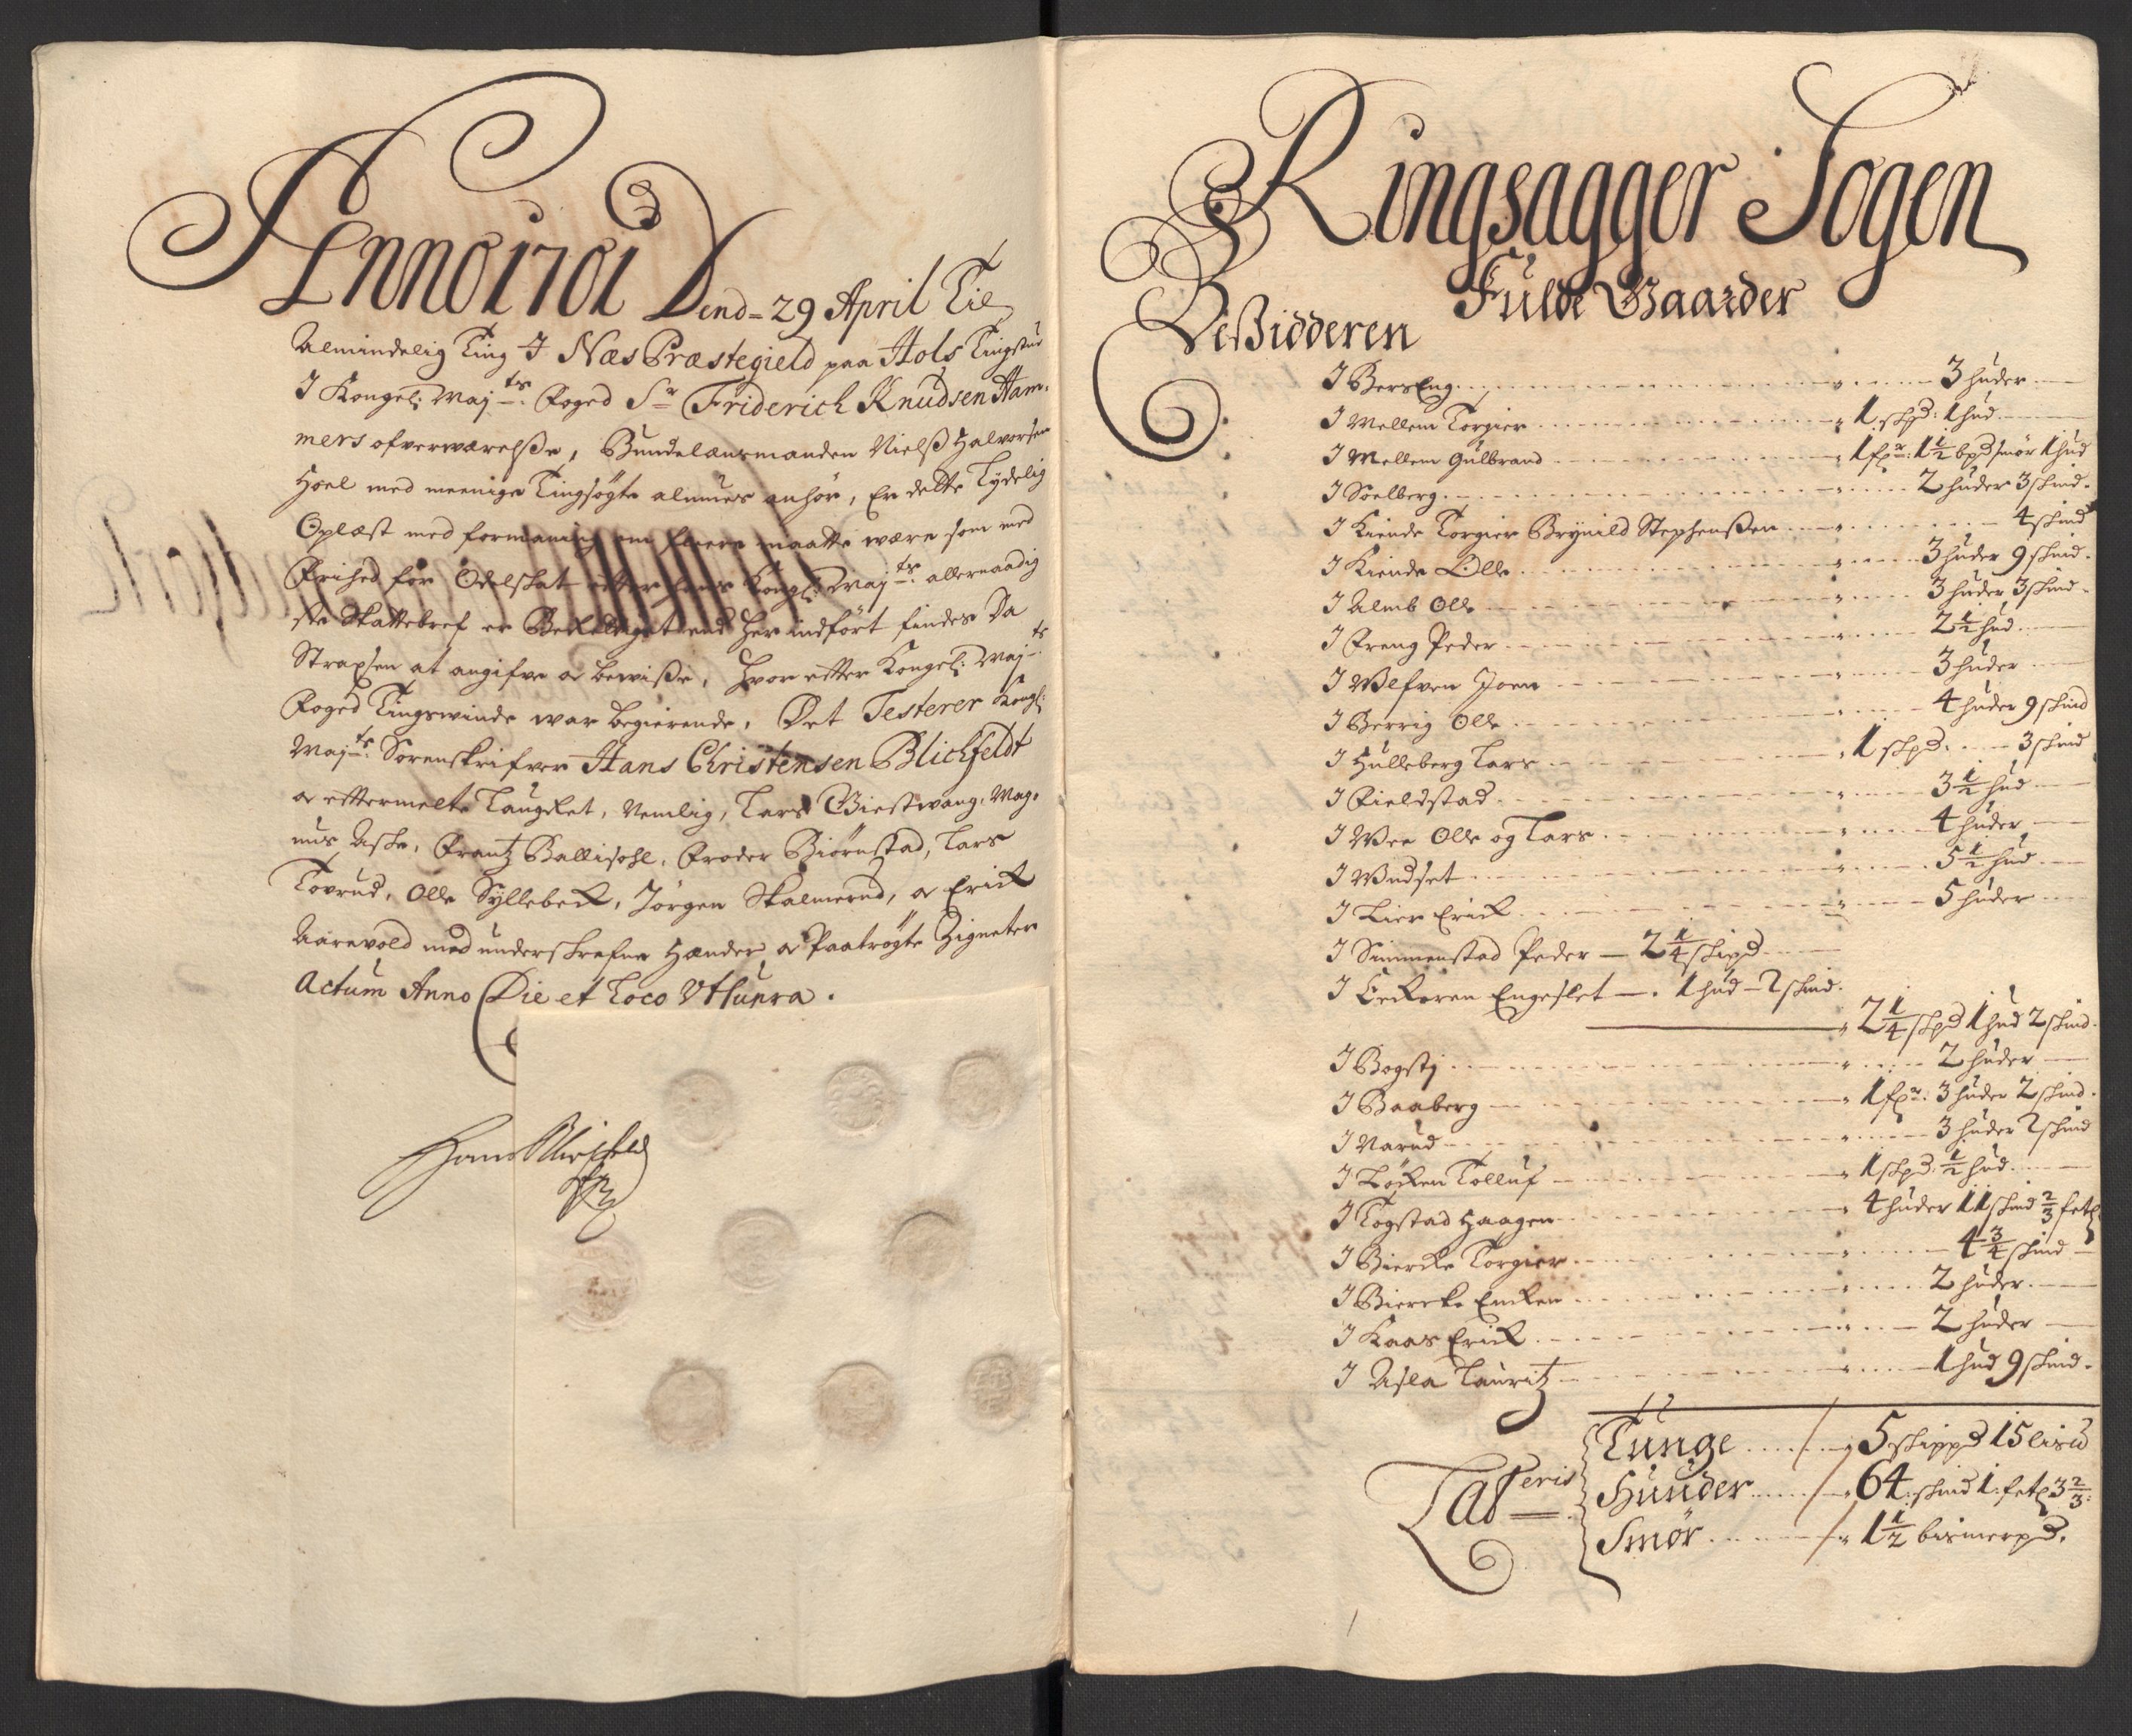 Anno 1701 Dend= 29 April Til
Almindelig Ting I Næs Præstegield paa Hols Tingstue
I Kongel: Maj:ts Foged Sr Friderich Knudsen Ham-
mers ofverwærelsse, Bundelænsmanden Nielss Halvorsen
Hoel med meenige Tingsøgte almues anhør, Er dette Tydelig
Oplæst med formaning om fleere maatte være som med
Frihed for Odelskat efter hans Kongl: Maj:ts allernaadig
ste Skattebref er end her indført findes Da
Strax sen at angifve oc bewisse, Hvor efter Kongel: Maj:ts
Foged Tingswinde war begierende, Det Testerer Kongl:
Maj:ts Sorenskrifver Hans Christensen Blichfeldt
oc eftermelte Laugret, Nemlig, Lars Biestwang, Mag-
nus Aske, Frantz Ballishol, Froder Biørnstad, Lars
Tovrud, Olle Syllebeck, Jørgen Skalmerud, oc Erick
Aarevold med underskrefne Hænder oc Paatrøgte Zigneter
Actum Anno Die et Loco Ut Supra.
Hans Blichfeld
Ringsagger Sogen
Fulde Gaarder
Bessidderen
I BersEng 3 huder
I Mellem Torgier 1 skpd: 1 hud
I Mellem Gulbrand 1 fxr: 1 1/2 bpd smør 1 hud
I Soelberg 2 huder 3 skind
I Kiende Torgier Brynild Stephenssen 4 skind
I Kiende Olle 3 huder 9 skind
I Almb Olle 3 huder 3 skind
I Freng Peder 2 1/2 hud
I Ulfven Joen 3 huder
I Berrig Olle 4 huder 9 skind
I Hulleberg Lars 1 skpd: 3 skind
I Fieldstad 3 1/2 hud
I Wee Olle og Lars 4 huder
I Wudset 5 1/2 hud
I Lier Erick 5 huder
I Simmenstad Peder — 2 1/4 skipd
I Eckeren Engeslet — 1 hud 2 skind
2 1/4 skpd 1 hud 2 skind
I Bogstj 2 huder
I Baaberg 1 fxr: 3 huder 2 skind
I Narud 3 huder 2 skind
I Løcken Tolluf 1 skpd: 1/2 hud
I Togstad Haagen 4 huder 11 skind 2/3 fetl
I Biercke Torgier 4 3/4 skind
I Biercke Encken 2 huder
I Kaas Erick 2 huder
I Asla Lauritz 1 hud 9 skind
Lateris
Tunge 5 skippd 15 lisd
Hunder 64: skind 1: fetl 3 2/3:
Smør 1 1/2 bismerpd.